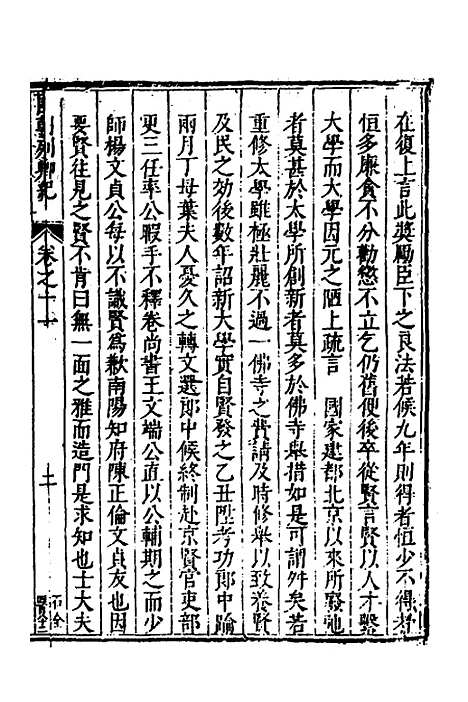 在復上言此獎勵臣下之良法若候九年則得者恒少不得者
恒多廉貪不分勸懲不立乞仍舊便後卒從賢言賢以人才繫
大學而大學因元之陋上疏言 國家建都北京以來所廢弛
者莫甚於太學所創新者莫多於佛寺舉措如是可謂舛矣若
重修太學雖極壯麗不過一佛寺之費請及時修舉以致養賢
及民之効後數年詔新大學實自賢發之乙丑陞考功郎中踰
兩月丁母葉夫人憂久之轉文選郎中候終制赴京賢官吏部
更三任率公暇手不釋卷尚書王文端公直以公輔期之而少
師楊文貞公每以不識賢為歉南陽知府陳正倫文貞友也因
要賢往見之賢不肯曰無一面之雅而造門是求知也士大夫
列卿紀 卷之十一